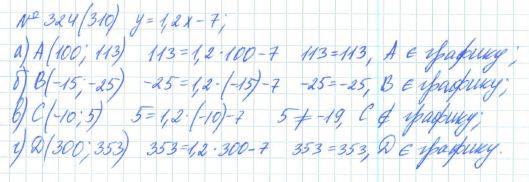 № 324(310) y=1,2x-7;
а) А(100; 113) 113=1,2·100-7 113=113, А ∈ графику;
б) В(-15; -25) -25=1,2·(-15)-7 -25=-25, В ∈ графику;
в) С(-10; 5) 5=1,2·(-10)-7 5≠-19, С ∉ графику;
г) D(300; 353) 353=1,2·300-7 353=353, D ∈ графику.